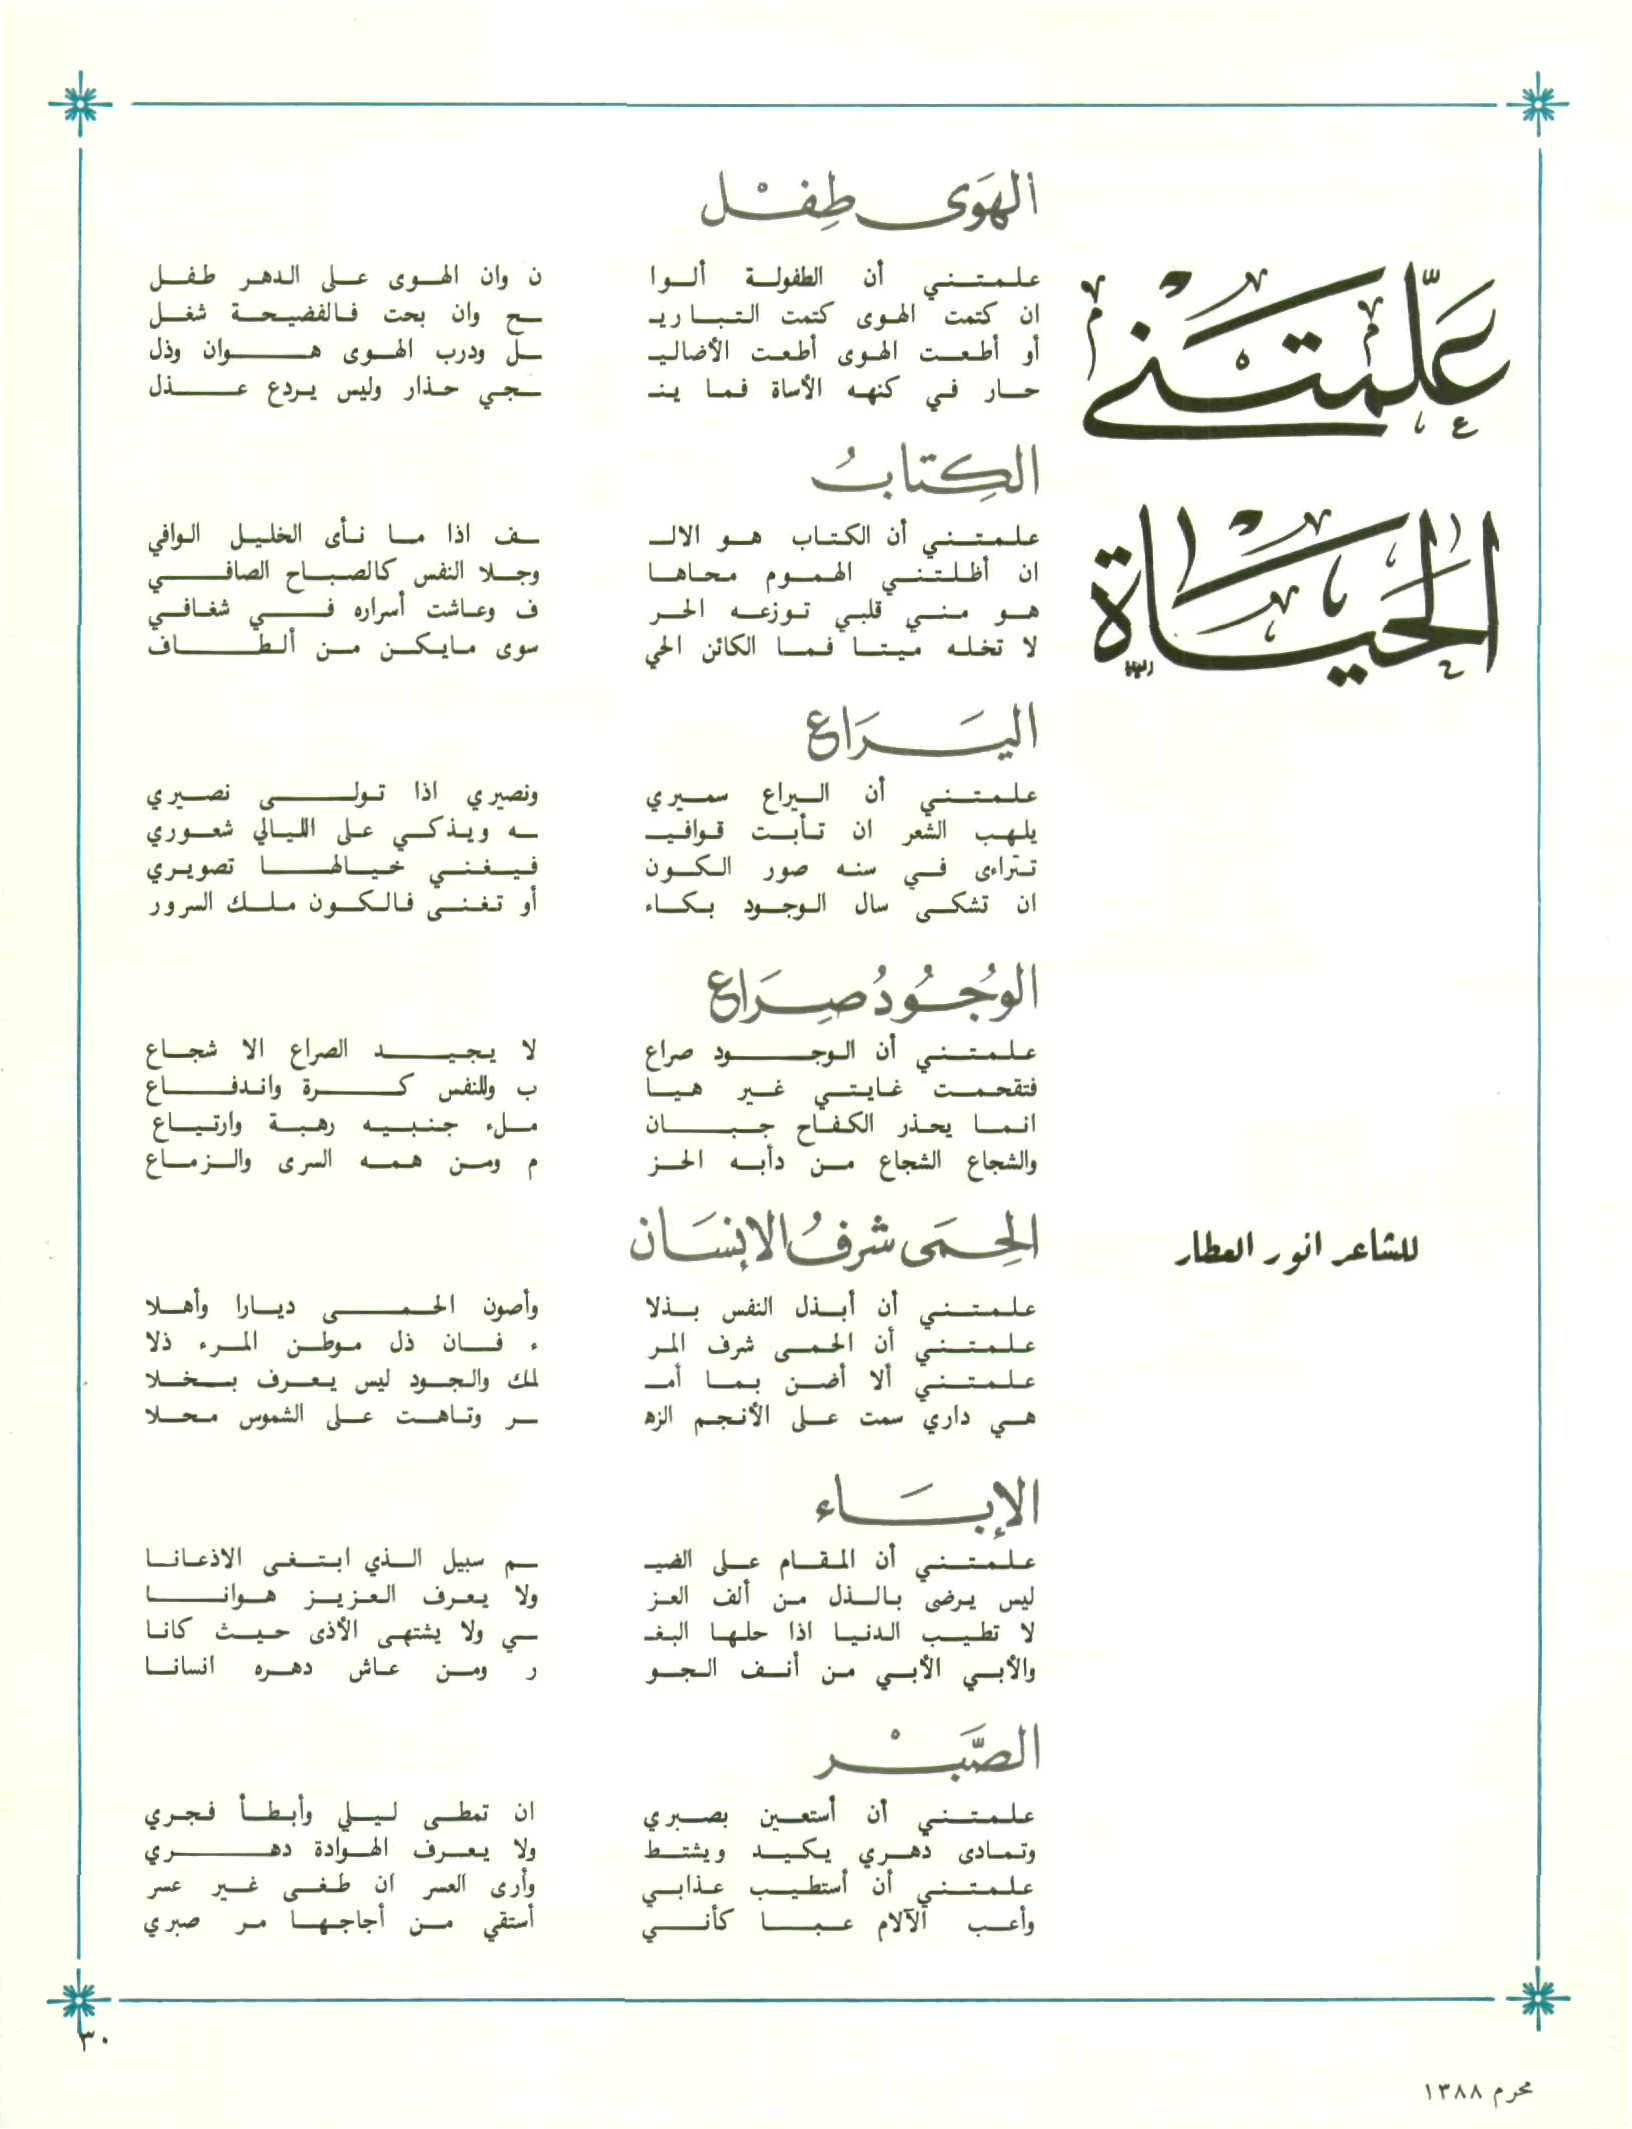 علّمتني
الحياة
للشاعر انور العطار
الهَوَى طِفْل
علمتني أن الطفولة ألوا ن وان الهوى على الدهر طفل
ان كتمت الهوى كتمت التباريـ ـح وان بحت فالفضيحة شغل
أو أطعت الهوى أطعت الأضاليـ ـل ودرب الهوى هوان وذل
حار في كنهه الأساة فما ينـ ـجي حذار وليس يردع عذل
الكِتابُ
علمتني أن الكتاب هو الالـ ـف اذا ما نأى الخليل الوافي
ان أظلتني الهموم محاها وجلا النفس كالصباح الصافي
هو مني قلبي توزعه الحر ف وعاشت أسراره في شغافي
لا تخله ميتا فما الكائن الحي سوى مايكن من ألطاف
اليَرَاع
علمتني أن اليراع سميري ونصيري اذا تولى نصيري
يلهب الشعر ان تأبت قوافيـ ـه ويذكي على الليالي شعوري
تتراءى في سنه صور الكون فيغني خيالها تصويري
ان تشكى سال الوجود بكاء أو تغنى فالكون ملك السرور
الوُجُودُ صِرَاع
علمتني أن الوجود صراع لا يجيد الصراع الا شجاع
فتقحمت غايتي غير هيا ب وللنفس كرة واندفاع
انما يحذر الكفاح جبان ملء جنبيه رهبة وارتياع
والشجاع الشجاع من دأبه الحز م ومن همه السرى والزماع
الحِمَى شرفُ الإنسَان
علمتني أن أبذل النفس بذلا وأصون الحمى ديارا وأهلا
علمتني أن الحمى شرف المر ء فان ذل موطن المرء ذلا
علمتني ألا أضن بما أمـ لك والجود ليس يعرف بخلا
هي داري سمت على الأنجم الزهـ ـر وتاهت على الشموس محلا
الإبَاء
علمتني أن المقام على الضيـ ـم سبيل الذي ابتغى الاذعانا
ليس يرضى بالذل من ألف العز ولا يعرف العزيز هوانا
لا تطيب الدنيا اذا حلها البغـ ـي ولا يشتهى الأذى حيث كانا
والأبي الأبي من أنف الجو ر ومن عاش دهره انسانا
الصَّبْر
علمتني أن أستعين بصبري ان تمطى ليلي وأبطأ فجري
وتمادى دهري يكيد ويشتط ولا يعرف الهوادة دهري
علمتني أن أستطيب عذابي وأرى العسر ان طغى غير عسر
وأعب الآلام عبا كأني أستقي من أجاجها مر صبري
٣٠
محرم ١٣٨٨